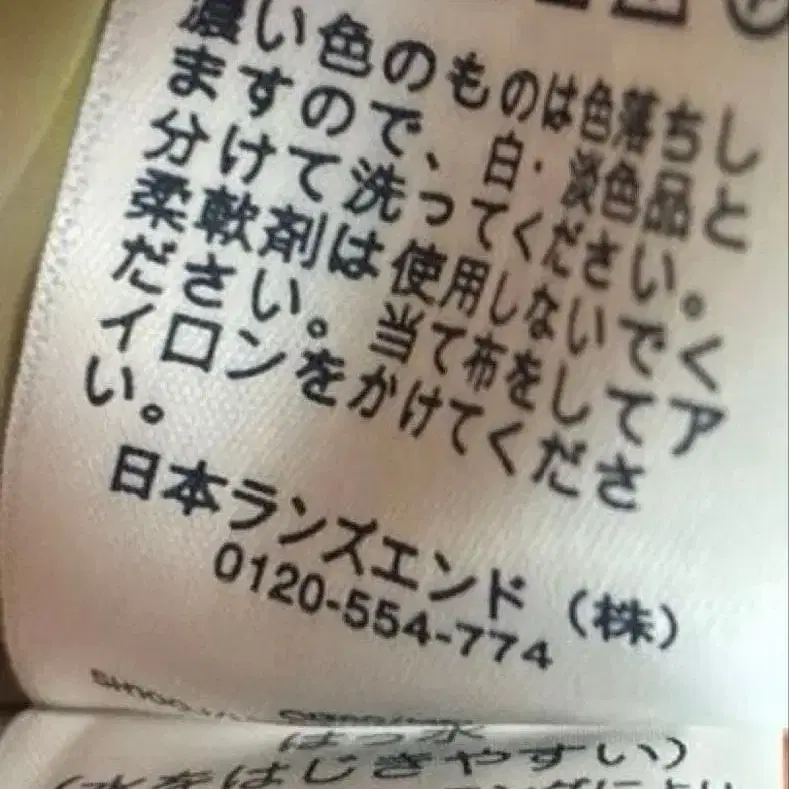 濃い色のものは色落ちし
ますので、白・淡色品と
分けて洗ってください。
柔軟剤は使用しないでく
ださい。当て布をしてア
イロンをかけてくださ
い。
日本ランズエンド（株）
0120-554-774
はっ水
（水をはじきやすい）